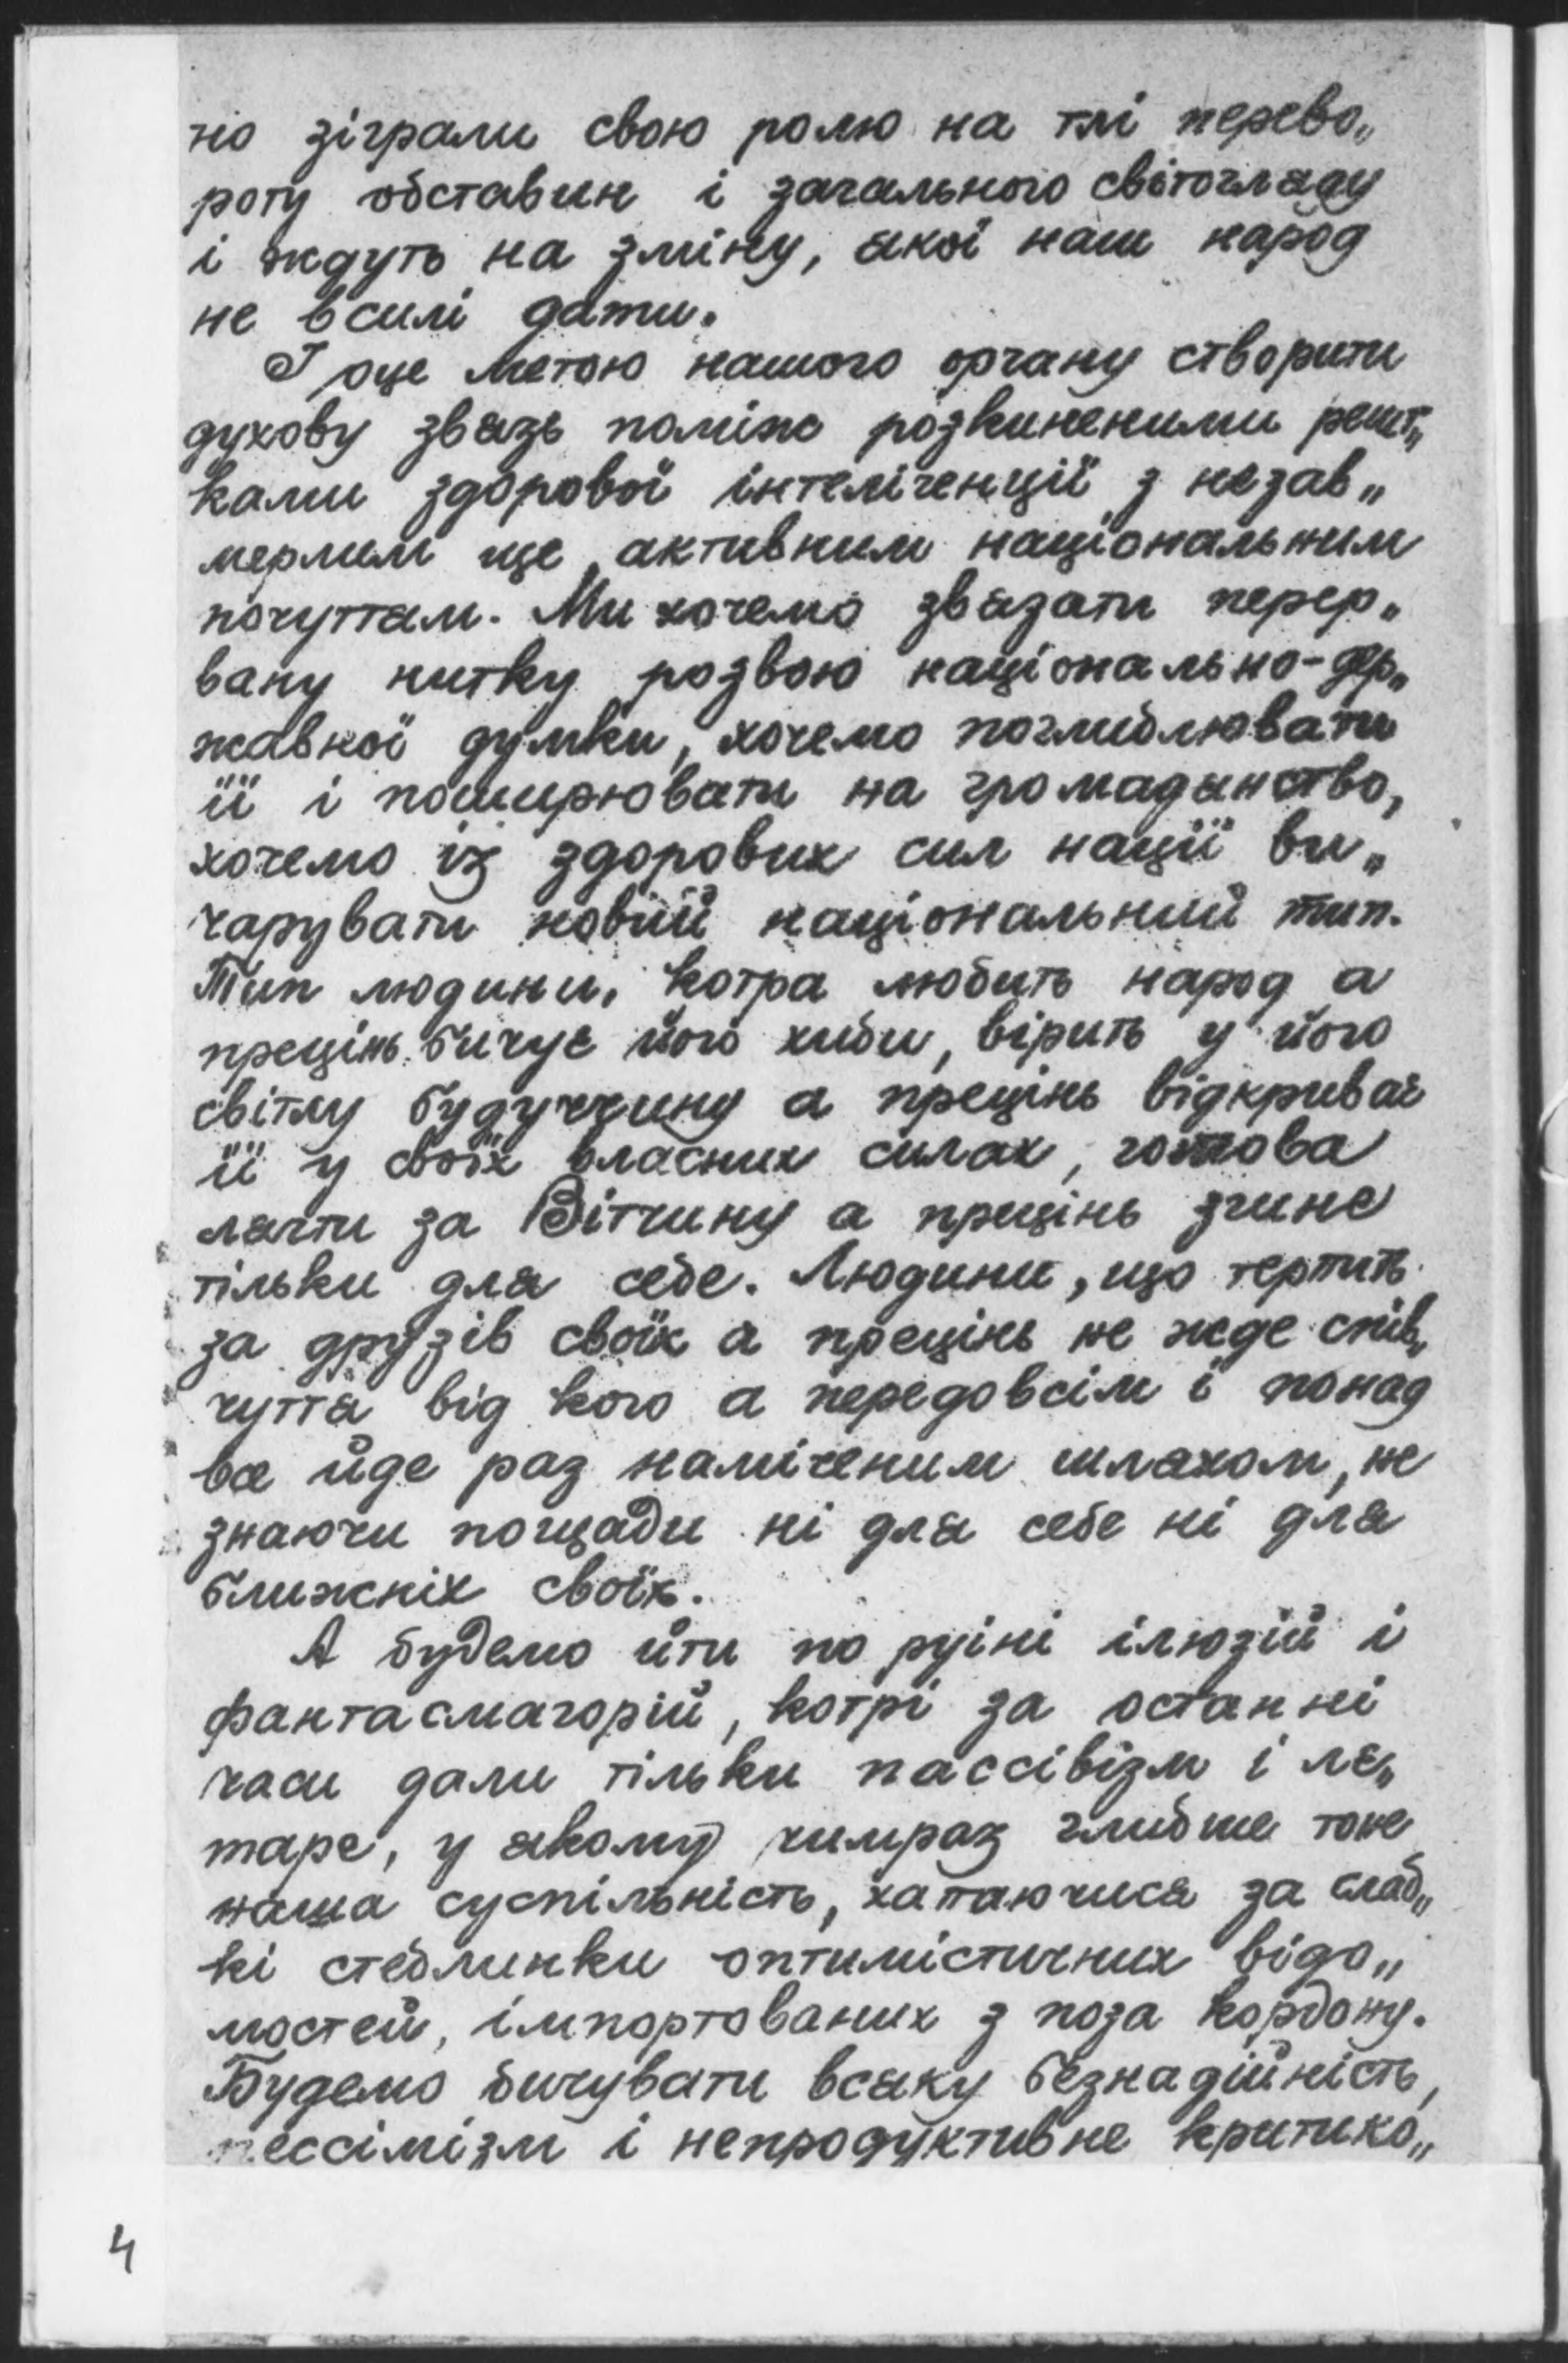 но зіграли свою ролю на тлі перево„
роту обставин і загального світогляду
і ждуть на зміну, якої наш народ
не всилі дати.
І оце метою нашого органу створити
духову звязь поміж розкиненими решт„
ками здорової інтелігенції з незав„
мерлим ще активним національним
почуттям. Ми хочемо звязати перер„
вану нитку розвою національно-дер„
жавної думки, хочемо поглиблювати
її і поширювати на громадянство,
хочемо із здорових сил нації ви„
чарувати новий національний тип.
Тип людини, котра любить народ а
прецінь бичує його хиби, вірить у його
світлу будуччину а прецінь відкриває
її у своїх власних силах, готова
лягти за Вітчину а прецінь згине
тільки для себе. Людини, що терпить
за друзів своїх а прецінь не жде спів„
чуття від кого а передовсім і понад
все йде раз наміченим шляхом, не
знаючи пощади ні для себе ні для
ближніх своїх.
А будемо йти по руїні ілюзій і
фантасмагорій, котрі за останні
часи дали тільки пассівізм і ле„
таре, у якому чимраз глибше тоне
наша суспільність, хапаючися за слаб„
кі стеблинки оптимістичних відо„
мостей, імпортованих з поза кордону.
Будемо бичувати всяку безнадійність,
пессімізм і непродуктивне критико„
4